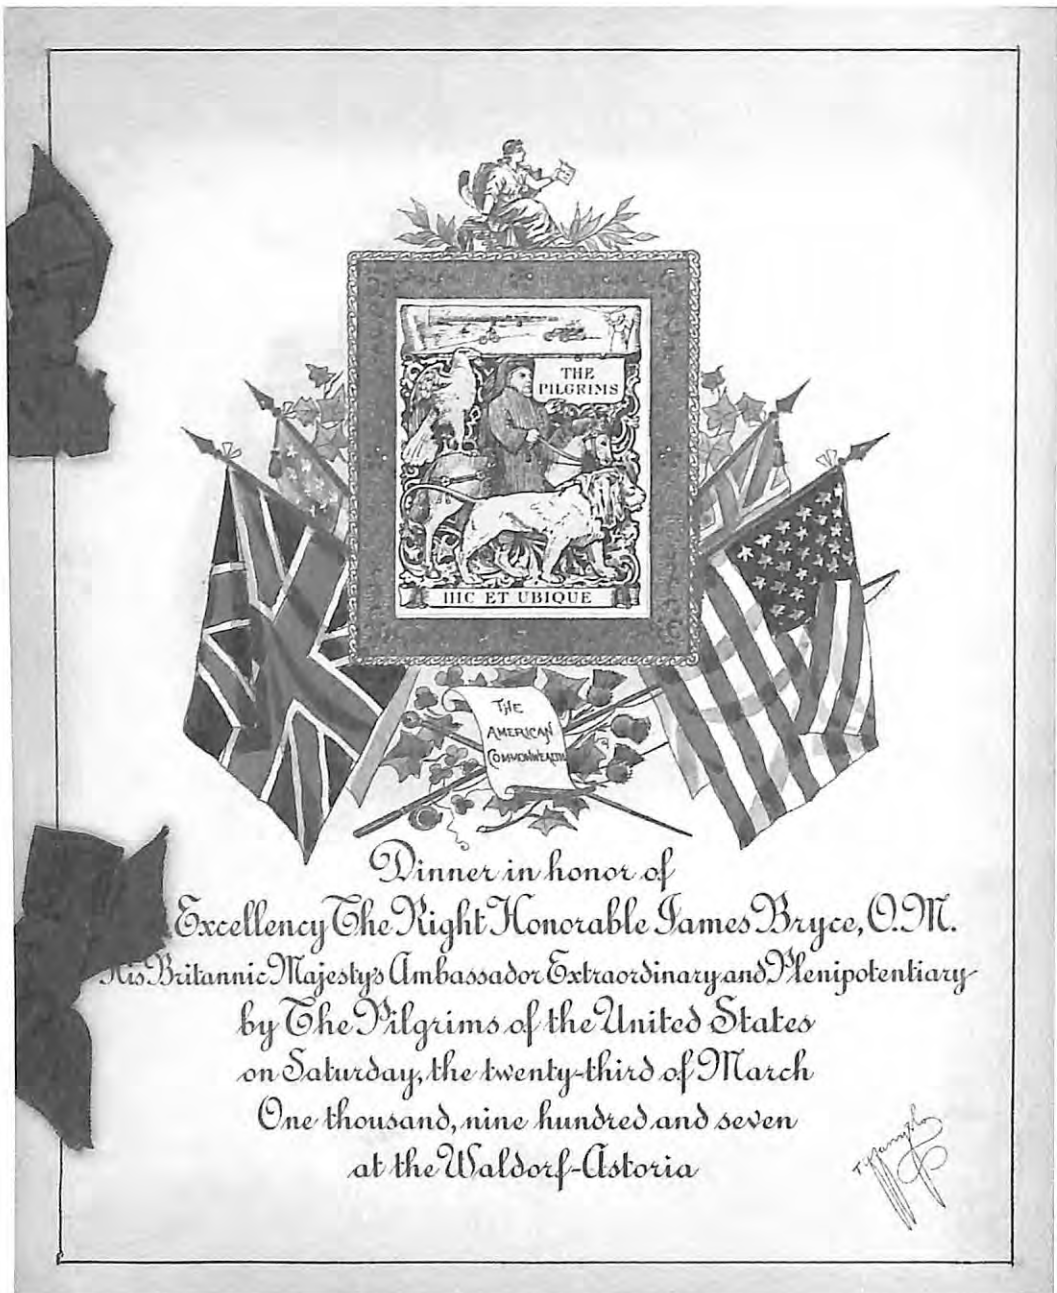 THE
PILGRIMS
HIC ET UBIQUE
THE
AMERICAN
COMMONWEALTH
Dinner in honor of
Excellency The Right Honorable James Bryce, O.M.
His Britannic Majesty's Ambassador Extraordinary and Plenipotentiary
by The Pilgrims of the United States
on Saturday, the twenty-third of March
One thousand, nine hundred and seven
at the Waldorf-Astoria